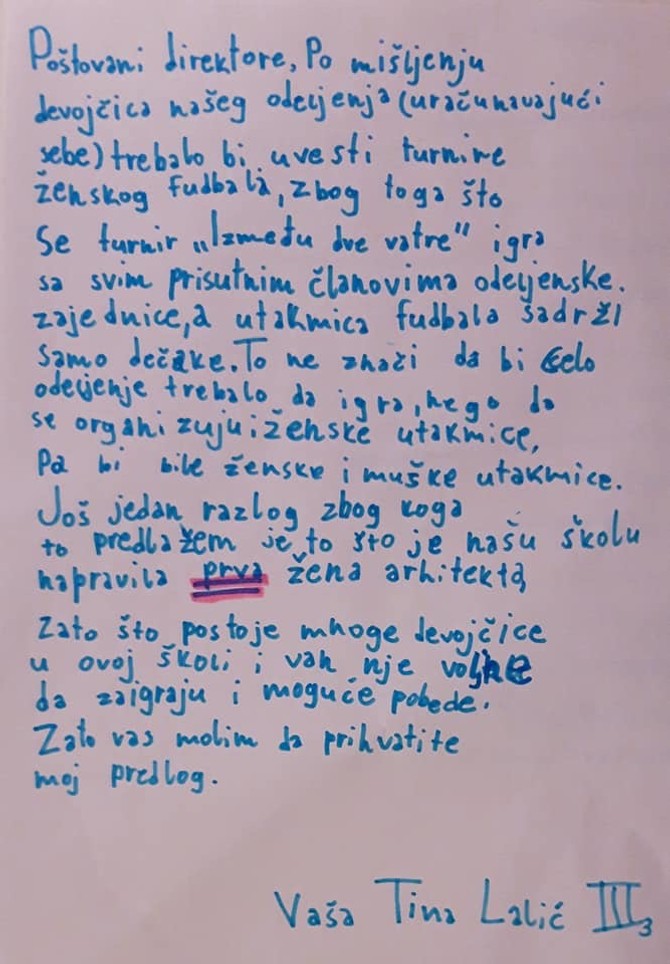 Poštovani direktore, Po mišljenju
devojčica našeg odeljenja (uračunavajući
sebe) trebalo bi uvesti turnire
ženskog fudbala, zbog toga što
se turnir „Između dve vatre" igra
sa svim prisutnim članovima odeljenske.
zajednice, a utakmica fudbala sadrži
samo dečake. To ne znači da bi celo
odeljenje trebalo da igra, nego da
se organizuju i ženske utakmice,
pa bi bile ženske i muške utakmice.
Još jedan razlog zbog koga
to predlažem je to što je našu školu
napravila prva žena arhitekta,
Zato što postoje mnoge devojčice
u ovoj školi i van nje voljne
da zaigraju i moguće pobede.
Zato vas molim da prihvatite
moj predlog.
Vaša Tina Lalić III3